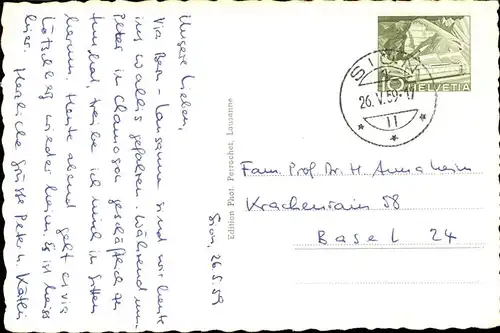 Sion, 26.5.59
Unsere Lieben,
Via Bern - Lausanne sind wir heute
ins Wallis gefahren. Während nun
Peter in Chamoson geschäftlich zu
tun hat, treibe ich mich in Sitten
herum. Heute abend geht es via
Lötschberg wieder heim. Es ist heiss
hier. Herzliche Grüsse Peter u. Käthi
Edition Phot. Perrochet, Lausanne
10
HELVETIA
SION
26.V.59
11
Fam. Prof. Dr. H. Annaheim
Krachenrain 58
Basel 24